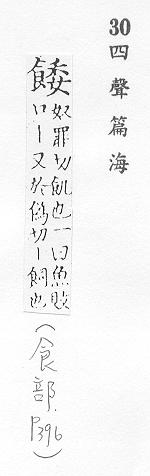 30四聲篇海
餧
奴罪切飢也一曰魚敗
曰丨又於僞切丨飼也
(食部. P396)